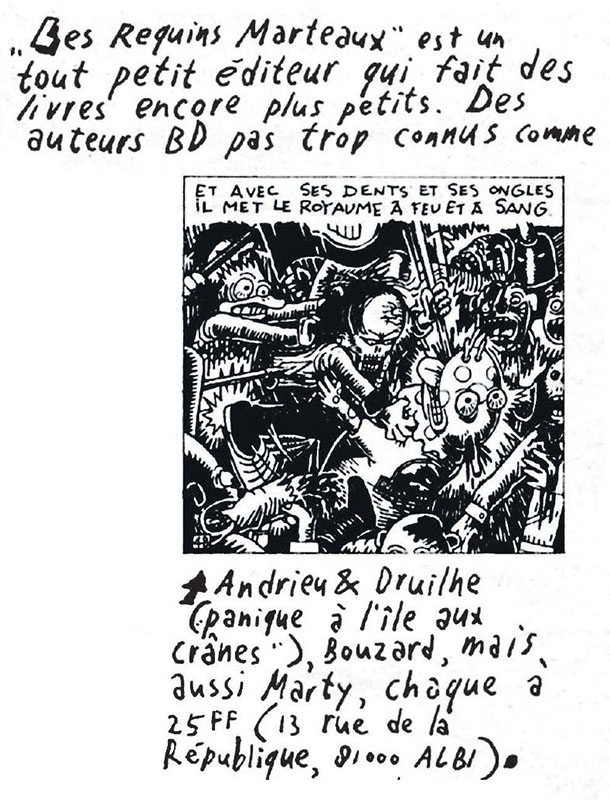 „Les Requins Marteaux" est un
tout petit éditeur qui fait des
livres encore plus petits. Des
auteurs BD pas trop connus comme
ET AVEC SES DENTS ET SES ONGLES
IL MET LE ROYAUME À FEU ET À SANG.
Andrieu & Druilhe
(panique à l'île aux
crânes"), Bouzard, mais
aussi Marty, chaque à
25FF (13 rue de la
République, 81000 ALBI).